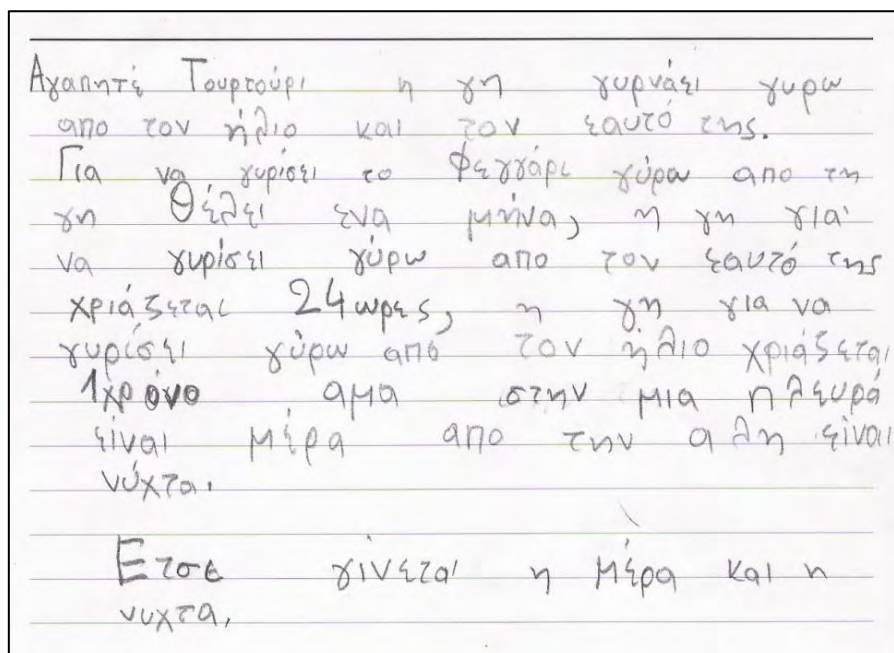 Αγαπητέ Τουρτούρι η γη γυρνάει γυρω
απο τον ήλιο και τον εαυτό της.
Για να γυρίσει το φεγγάρι γύρω απο τη
γη Θέλει ενα μήνα, η γη για
να γυρίσει γύρω απο τον εαυτό της
χριάζεται 24 ωρες, η γη για να
γυρίσει γύρω από τον ήλιο χριάζεται
1χρόνο αμα στην μια πλευρά
είναι μέρα απο την αλη είναι
νύχτα.
Ετσι γίνεται η μέρα και η
νυχτα.